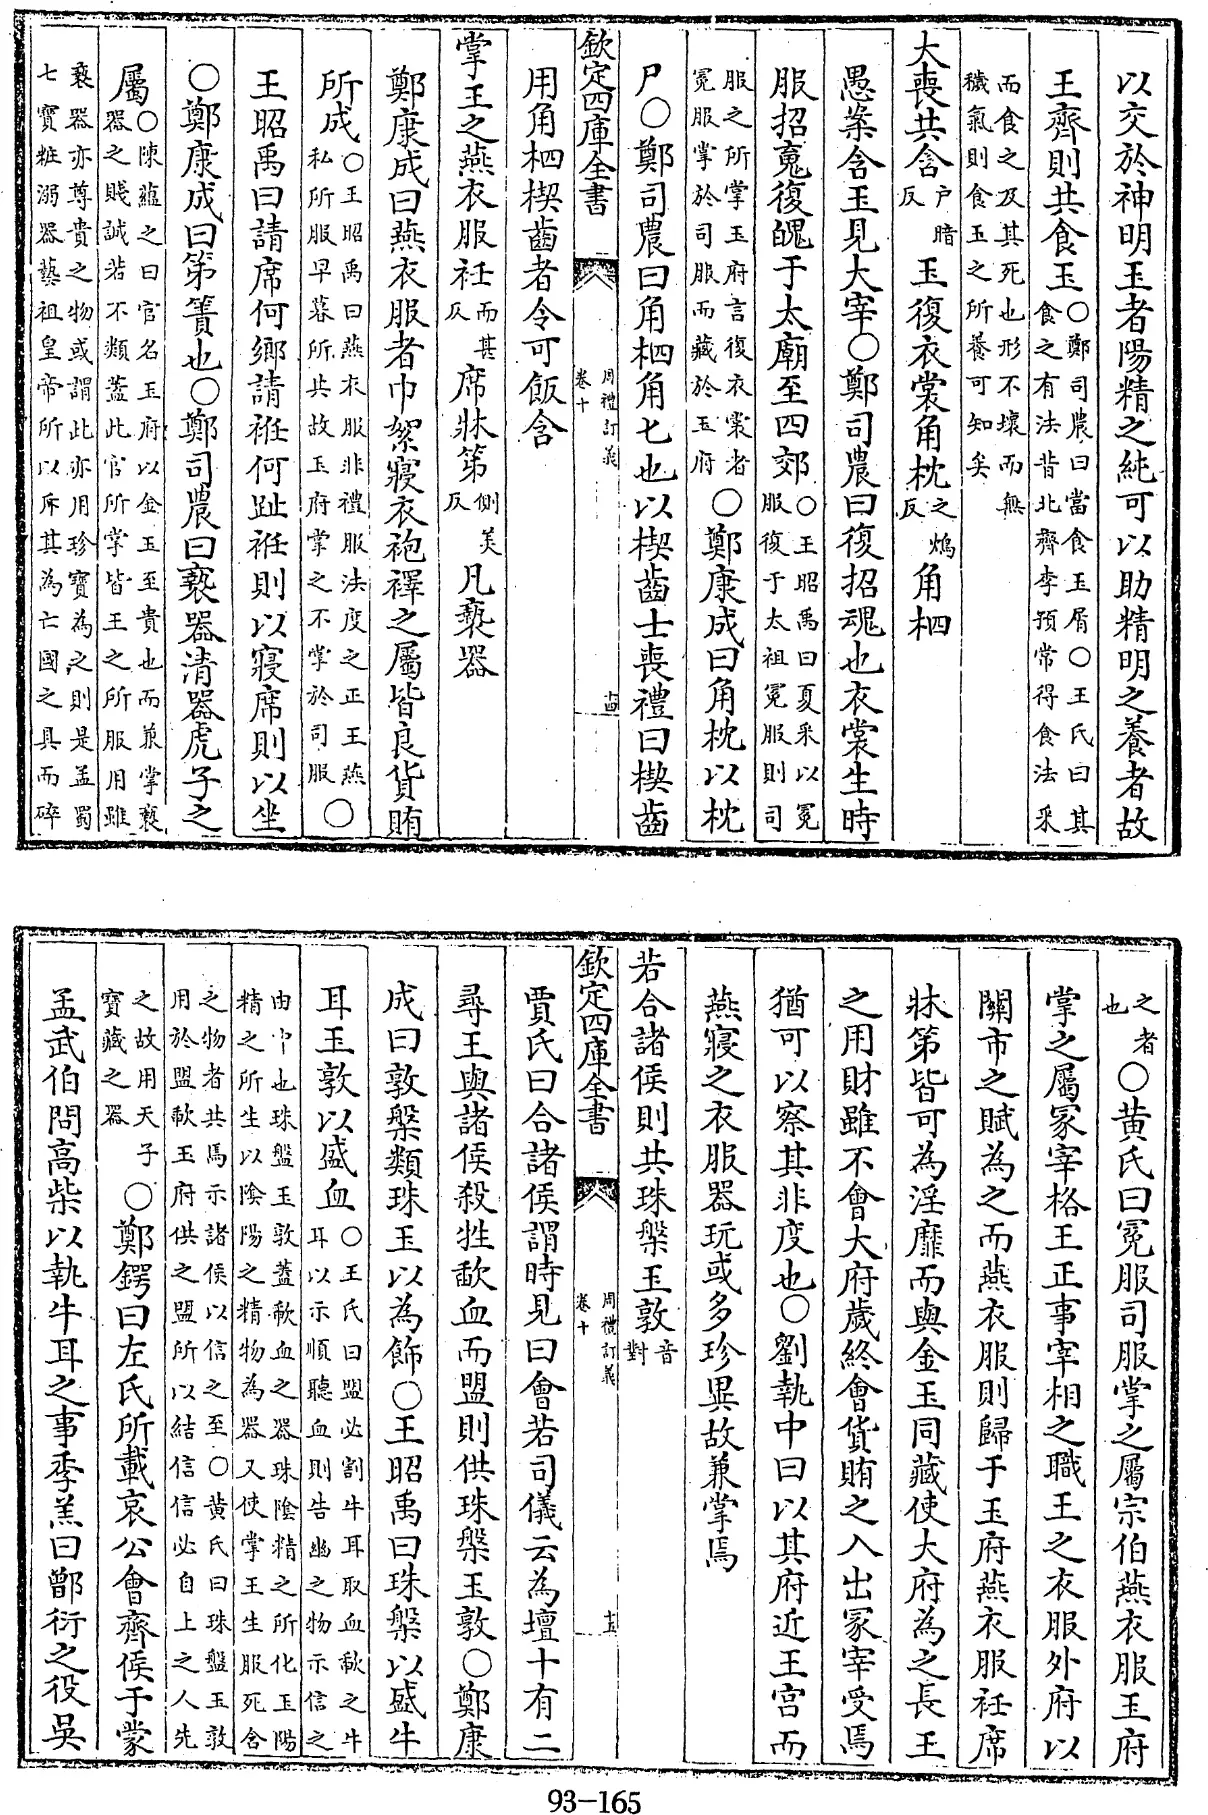 以交於神明玉者陽精之純可以助精明之養者故
王齊則共食玉〇鄭司農曰當食玉屑〇王氏曰其食之有法昔北齊李預常得食法采
而食之及其死也形不壞而無穢氣則食玉之所養可知矣
大喪共含户暗反玉復衣裳角枕之鴆反角柶
愚案含玉見大宰〇鄭司農曰復招魂也衣裳生時
服招䰟復魄于太廟至四郊〇王昭禹曰夏采以冕服復于太祖冕服則司
服之所掌玉府言復衣裳者冕服掌於司服而藏於玉府〇鄭康成曰角枕以枕
尸〇鄭司農曰角柶角七也以楔齒士喪禮曰楔齒
欽定四庫全書
周禮訂義
卷十
十四
用角柶楔齒者令可飯含
掌王之燕衣服衽而甚反席牀第側美反凡褻器
鄭康成曰燕衣服者巾絮寢衣袍襗之屬皆良貨賄
所成〇王昭禹曰燕衣服非禮服法度之正王燕私所服早暮所共故玉府掌之不掌於司服〇
王昭禹曰請席何鄉請衽何趾衽則以寢席則以坐
〇鄭康成曰第簀也〇鄭司農曰褻器清器虎子之
屬〇陳藴之曰官名玉府以金玉至貴也而兼掌褻器之賤誠若不類蓋此官所掌皆王之所服用雖
褻器亦尊貴之物或謂此亦用珍寶為之則是孟蜀七寶粧溺器藝祖皇帝所以斥其為亡國之具而碎
之者也〇黄氏曰冕服司服掌之屬宗伯燕衣服玉府
掌之屬冢宰格王正事宰相之職王之衣服外府以
關市之賦為之而燕衣服則歸于玉府燕衣服衽席
牀第皆可為淫靡而與金玉同藏使大府為之長王
之用財雖不會大府歲終會貨賄之入出冢宰受焉
猶可以察其非度也〇劉執中曰以其府近王宫而
燕寢之衣服器玩或多珍異故兼掌焉
若合諸侯則共珠槃玉敦音對
欽定四庫全書
周禮訂義
卷十
十五
賈氏曰合諸侯謂時見曰會若司儀云為壇十有二
尋王與諸侯殺牲歃血而盟則供珠槃玉敦〇鄭康
成曰敦槃類珠玉以為飾〇王昭禹曰珠槃以盛牛
耳玉敦以盛血〇王氏曰盟必割牛耳取血歃之牛耳以示順聽血則告幽之物示信之
由中也珠盤玉敦蓋歃血之器珠陰精之所化玉陽精之所生以陰陽之精物為器又使掌王生服死含
之物者共焉示諸侯以信之至〇黄氏曰珠盤玉敦用於盟歃玉府供之盟所以結信信必自上之人先
之故用天子寶藏之器〇鄭鍔曰左氏所載哀公會齊侯于蒙
孟武伯問高柴以執牛耳之事季羔曰鄫衍之役吳
93-165